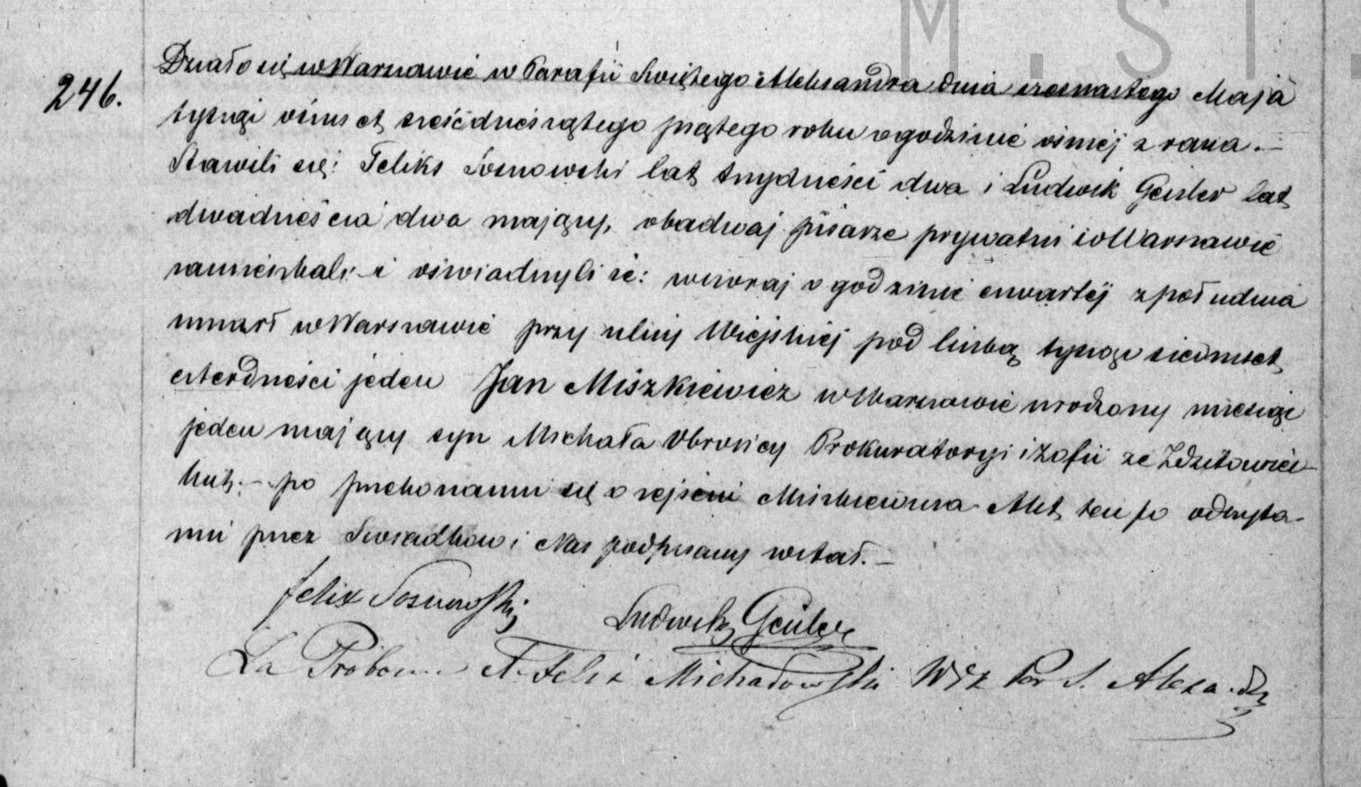 M . S T .
246.
Działo się w Warszawie w Parafii Świętego Aleksandra dnia szesnastego Maja
tysiąc ośmset sześćdziesiątego piątego roku o godzinie ósmej z rana.—
Stawili się: Feliks Sosnowski lat trzydzieści dwa i Ludwik Geisler lat
dwadzieścia dwa mający, obadwaj pisarze prywatni w Warszawie
zamieszkali i oświadczyli że: wczoraj o godzinie czwartej z południa
umarł w Warszawie przy ulicy Wiejskiej pod liczbą tysiąc siedmset
czterdzieści jeden Jan Miszkiewicz w Warszawie urodzony miesiąc
jeden mający syn Michała Obrońcy Prokuratoryi i Zofii ze Zdzitowiec-
kich.— po przekonaniu się o zejściu Miszkiewicza Akt ten po odczyta-
niu przez Świadków i Nas podpisany został.—
Felix Sosnowski Ludwik Geisler
Za Probosz. Felix Michałowski Wik Par S. Alexandra